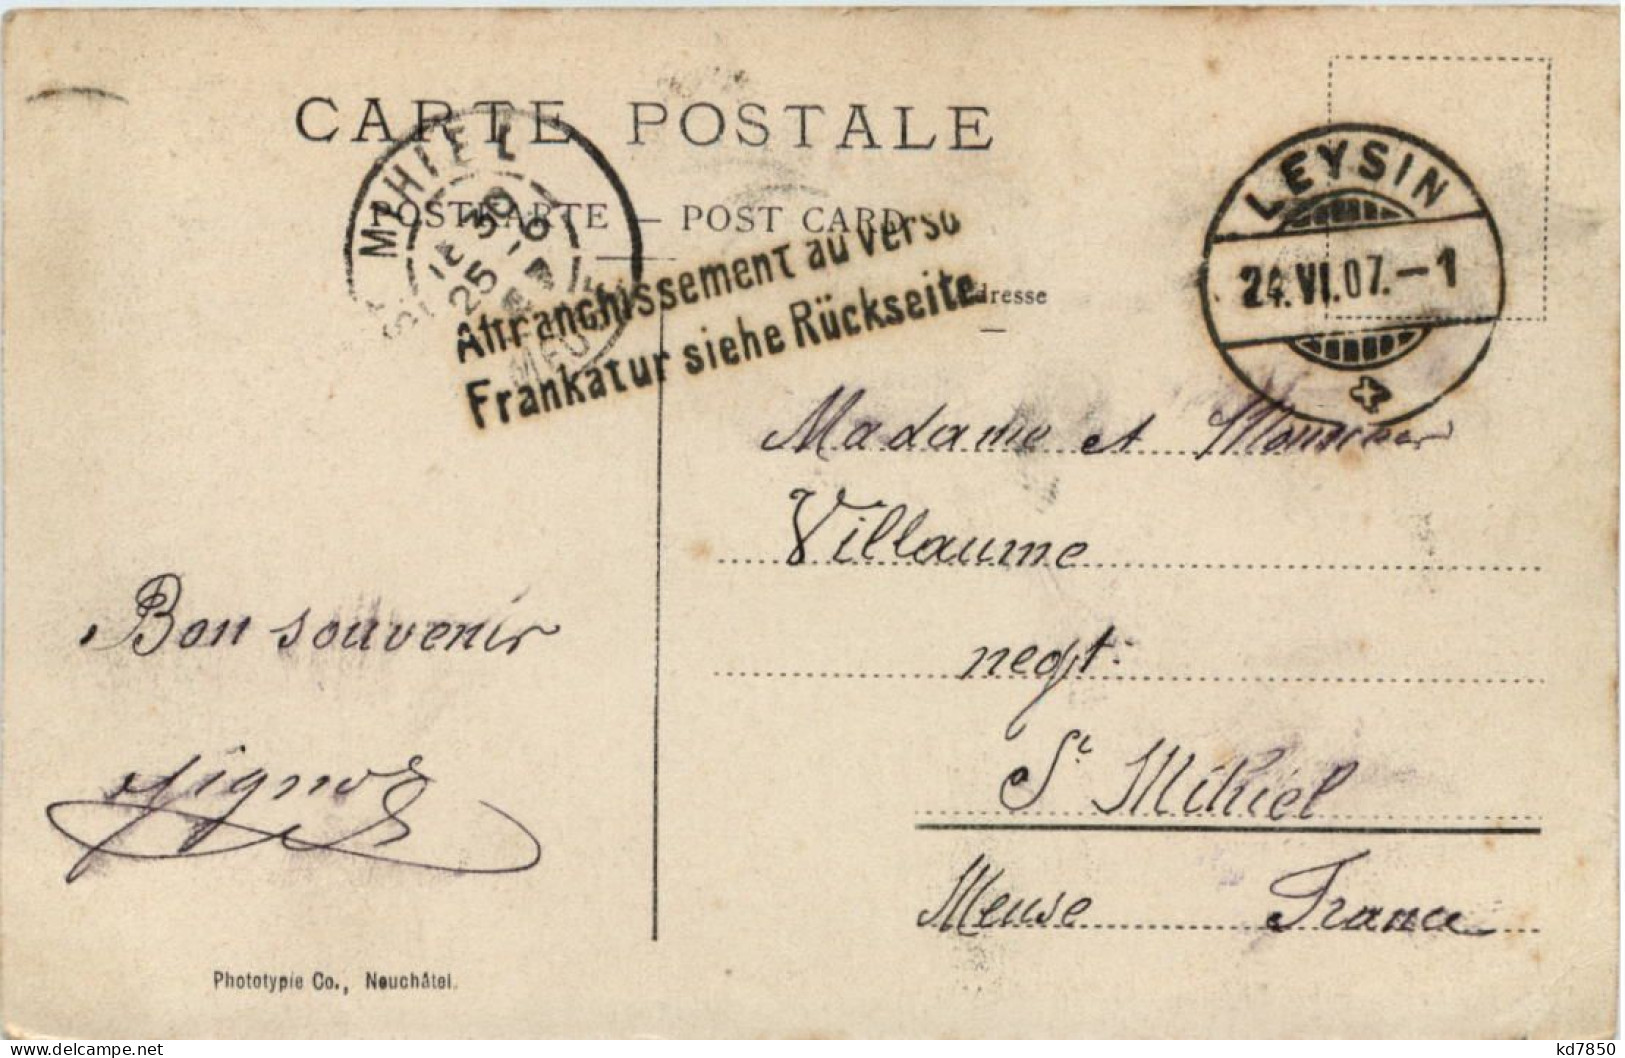 CARTE POSTALE
POSTKARTE — POST CARD
Adresse
ST MIHIEL
15 30
25 -6
MEUSE
Affranchissement au verso
Frankatur siehe Rückseite
LEYSIN
24.VI.07.–1
Madame et Monsieur
Villaume
negt.
St Mihiel
Meuse France
Bon souvenir
Phototypie Co., Neuchâtel.
delcampe.net
kd7850